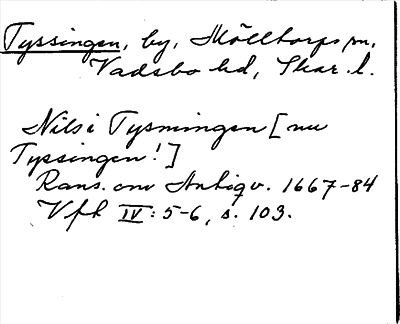 Tyssingen, by, Mölltorps sn,
Vadsbo hd, Skar. l.
Nils i Tysmingen [nu
Tyssingen!]
Rans. om Antiqv. 1667-84
Vfh IV: 5-6, s. 103.